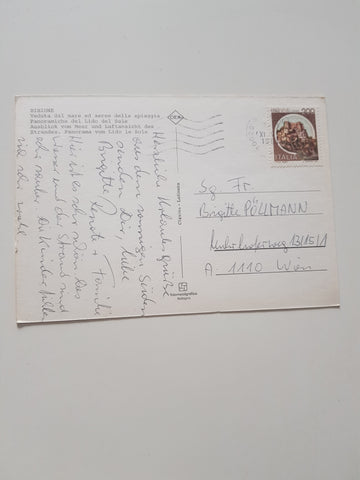 BIBIONE
Veduta dal mare ed aerea della spiaggia
Panoramiche del Lido del Sole
Ausblick vom Meer und Luftansicht des
Strandes. Panorama vom Lido le Sole
Herzliche Urlaubsgrüße
aus dem sonnigen Süden
senden Dir, liebe
Brigitte, Renate + Familie
Hier ist es sehr schön, das
Wasser und der Strand sind
sehr sauber. Die Kinder fühlen
sich sehr wohl.
200
ITALIA
Sg. Fr.
Brigitte PÖLLMANN
13/15/1
A 1110 Wien